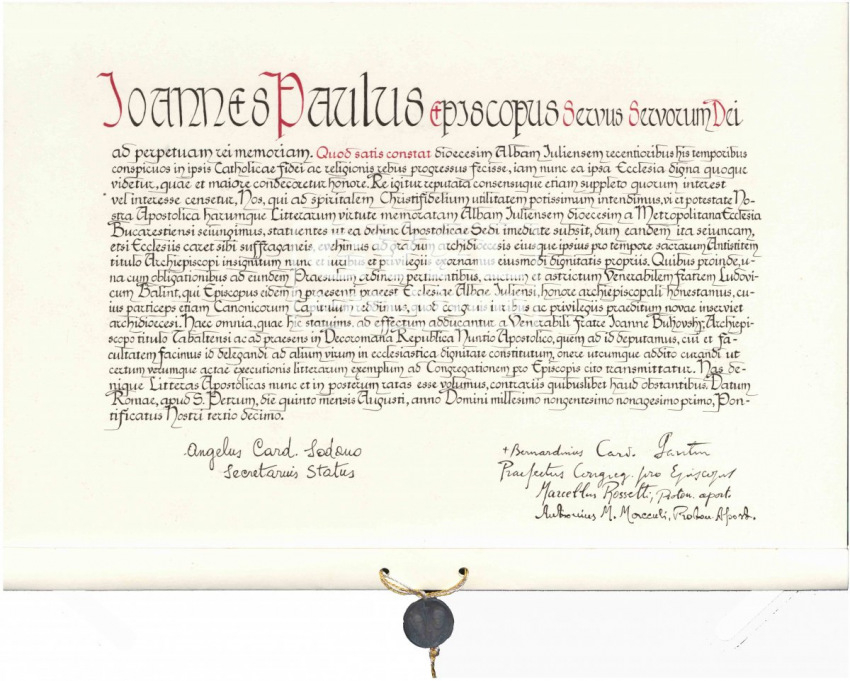 Ioannes Paulus Episcopus Servus Servorum Dei
ad perpetuam rei memoriam. Quod satis constat dioecesim Albam Iuliensem recentioribus his temporibus
conspicuos in ipsis Catholicae fidei ac religionis rebus progressus fecisse, iam nunc ea ipsa Ecclesia digna quoque
videtur, quae et maiore condecoretur honore. Re igitur reputata consensuque etiam suppleto quorum interest
vel interesse censetur, Nos, qui ad spiritalem Christifidelium utilitatem potissimum intendimus, vi et potestate No-
stra Apostolica harumque Litterarum virtute memoratam Albam Iuliensem dioecesim a Metropolitana Ecclesia
Bucarestiensi seiungimus, statuentes ut ea dehinc Apostolicae Sedi imediate subsit, dum eandem ita seiuncam,
etsi Ecclesiis caret sibi suffraganeis, evehimus ad gradum archidioecesis eiusque ipsius pro tempore sacrorum Antistitem
titulo Archiepiscopi insignitum nunc et iuribus et privilegiis exornamus eiusmodi dignitatis propriis. Quibus proinde, u-
na cum obligationibus ad eundem Praesulum ordinem pertinentibus, auctum et astrictum Venerabilem fratrem Ludovi-
cum Balint, qui Episcopus eidem in praesenti praeest Ecclesiae Albae Iuliensi, honore archiepiscopali honestamus, cu-
ius particeps etiam Canonicorum Capitulum reddimus, quod congruis iuribus ac privilegiis praeditum novae inserviet
archidioecesi. Haec omnia, quae hic statuims, ad effectum adducantur a Venerabili fratre Ioanne Bukovsky, Archiepi-
scopo titulo Tabaltensi ac ad praesens in Dacoromana Republica Nuntio Apostolico, quem ad id deputamus, cui et fa-
cultatem facimus id delegandi ad alium virum in ecclesiastica dignitate constitutum, onere utcumque addito curandi ut
certum verumque actae executionis litterarum exemplum ad Congregationem pro Episcopis cito transmittatur. Has de-
nique Litteras Apostolicas nunc et in posterum ratas esse volumus, contrariis quibuslibet haud obstantibus. Datum
Romae, apud S. Petrum, die quinto mensis Augusti, anno Domini millesimo nongentesimo nonagesimo primo, Pon-
tificatus Nostri tertio decimo.
Angelus Card. Sodano
Secretarius Status
+ Bernardinus Card. Gantin
Praefectus Congreg. pro Episcopis
Marcellus Rossetti, Proton. apost.
Antonius M. Morcculi, Proton. Apost.